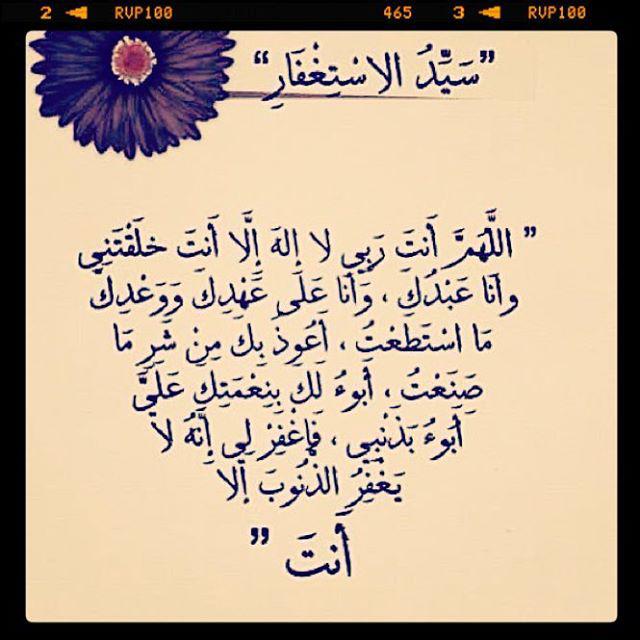 2 ◀ RVP100 465 3 ◀ RVP100
”سَيِّدُ الاسْتِغْفَارِ“
” اللَّهُمَّ أَنتَ رَبِي لا إلهَ إلَّا أَنتَ خلَقْتَنِي
وأنَا عَبْدُكَ ، وَأنا عَلَى عَهْدِكَ وَوَعْدِكَ
مَا اسْتَطَعْتُ ، أَعُوذُ بِكَ مِنْ شَرِ مَا
صَنَعْتُ ، أبوءُ لَكَ بِنِعْمَتِكَ عَلَيَّ
أَبوءُ بَذَنْبِي ، فَإغْفِرْ لِي إِنَّهُ لا
يَغْفِرُ الذُنُوبَ إلا
أَنتَ ”